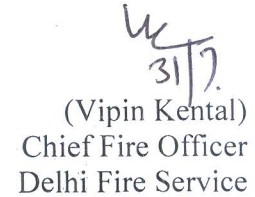 31/7.
(Vipin Kental)
Chief Fire Officer
Delhi Fire Service